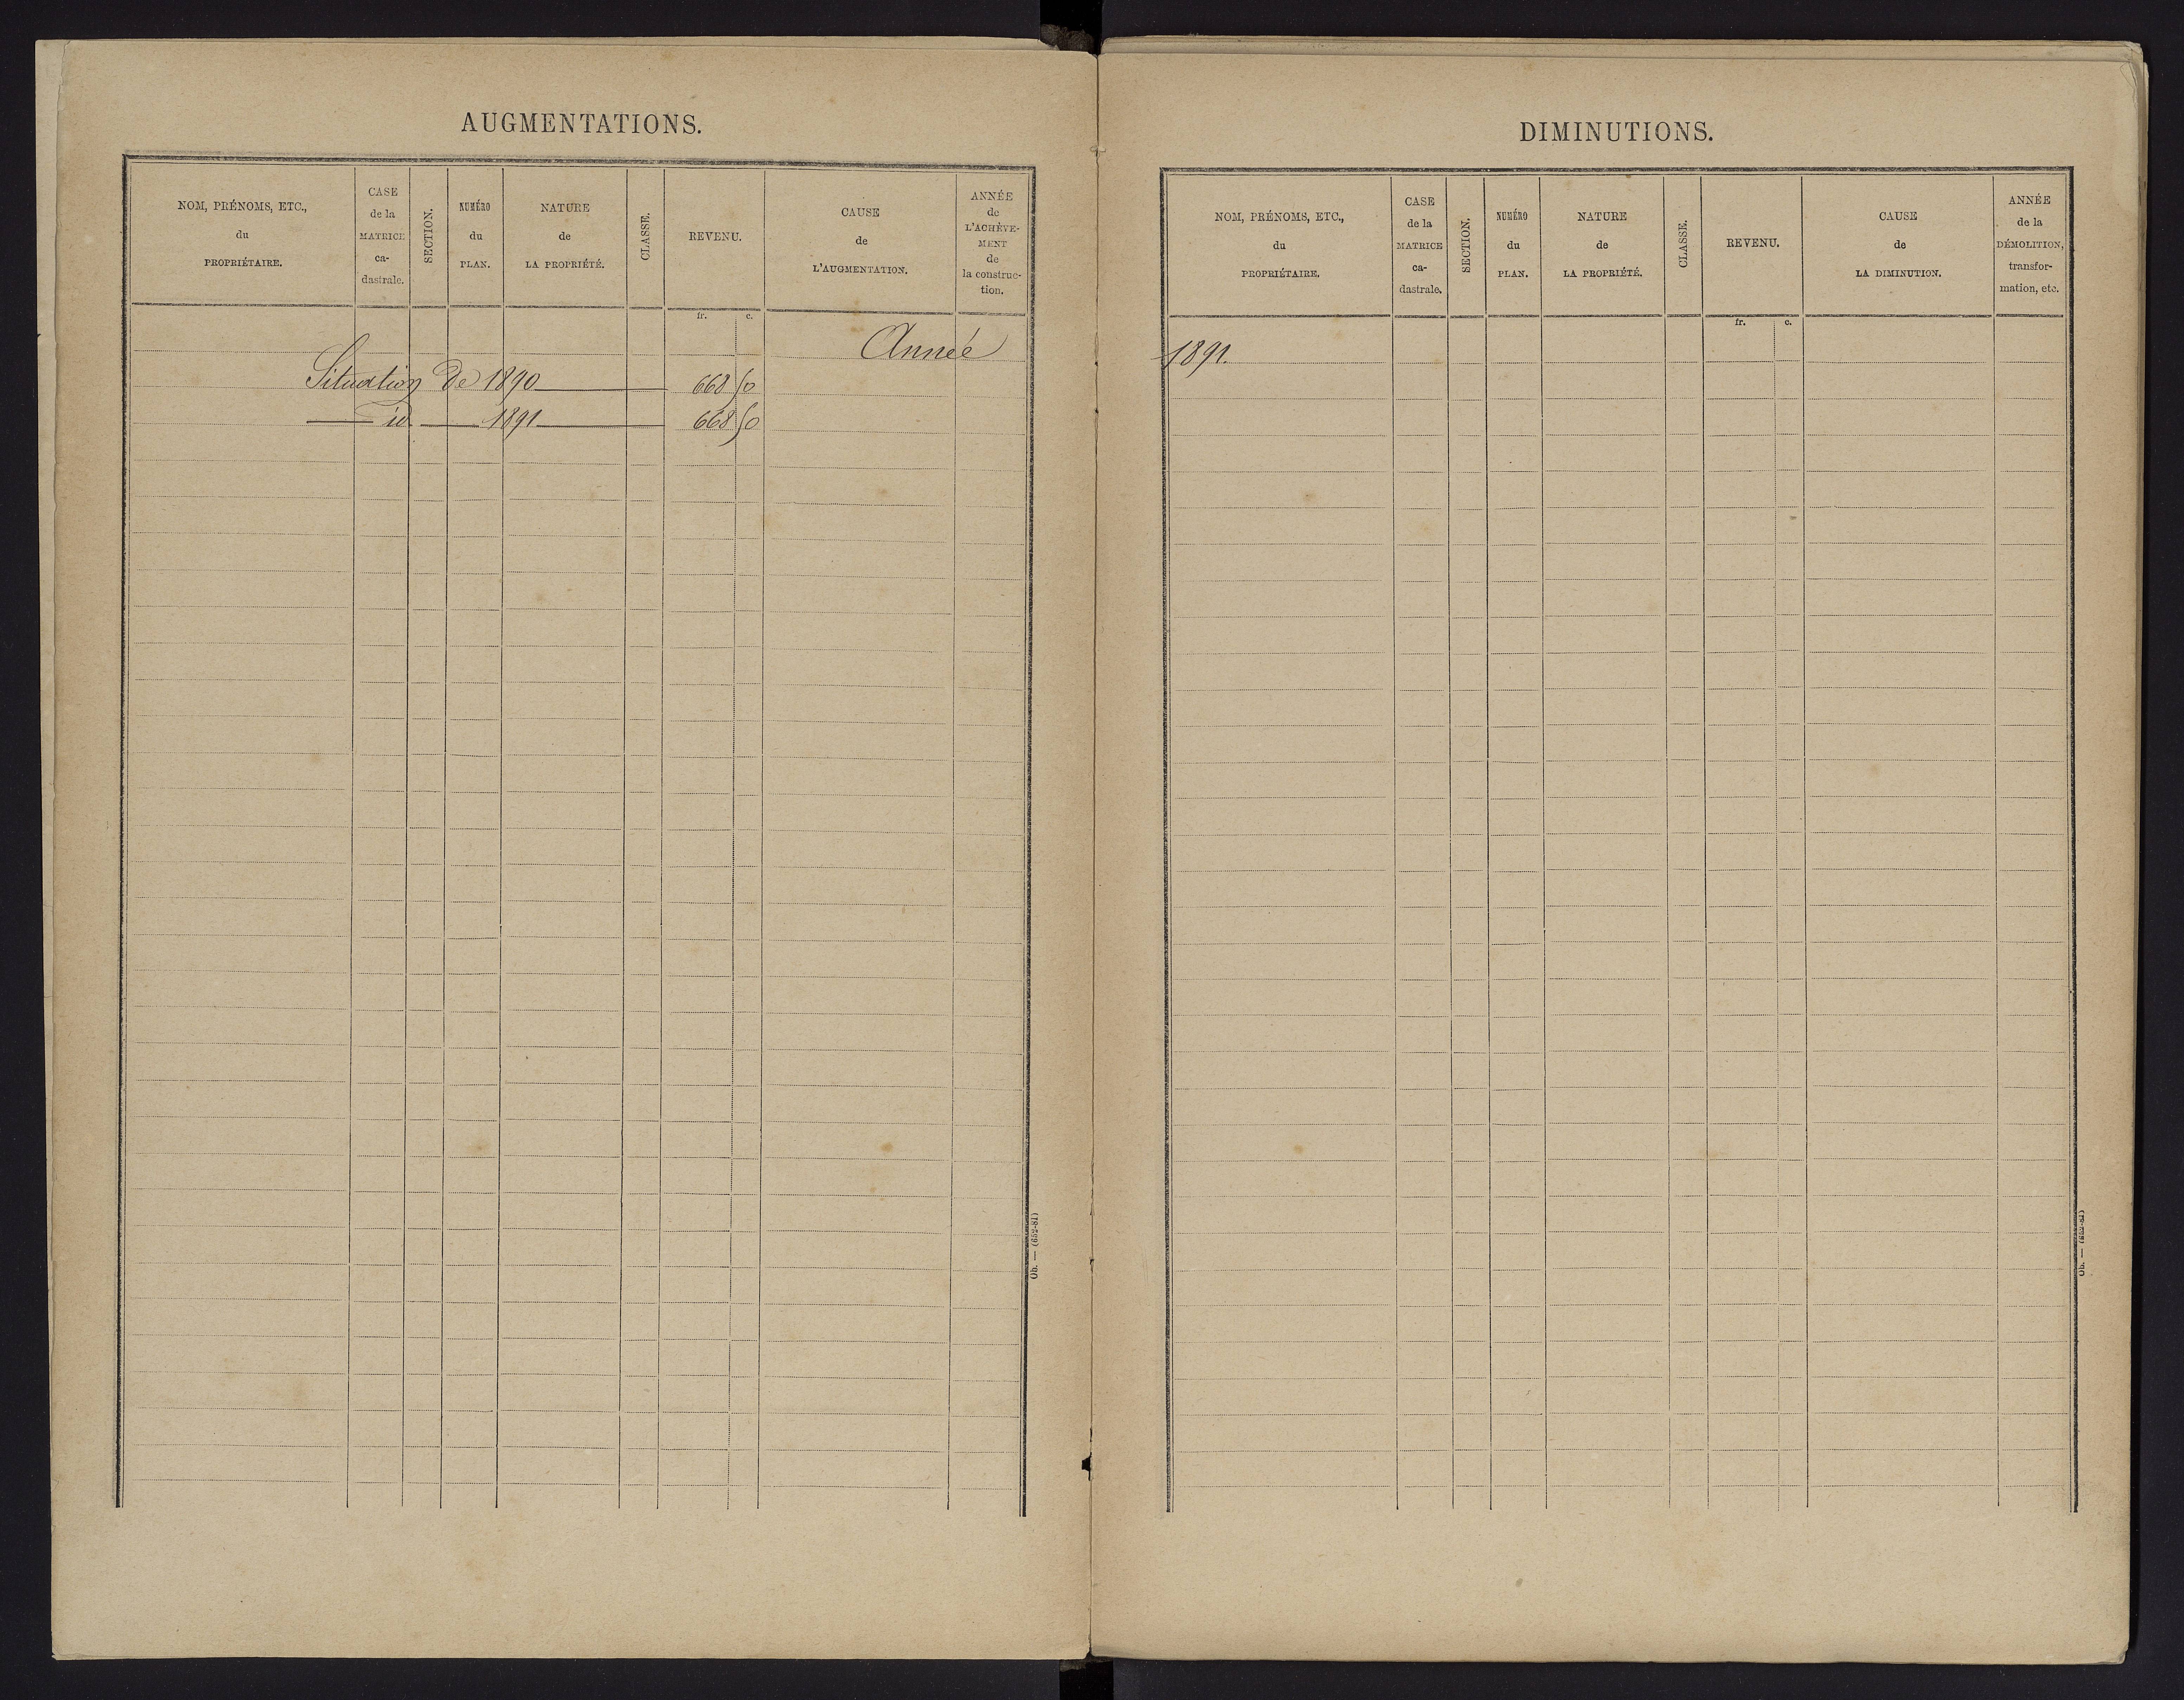 AUGMENTATIONS.
NOM, PRÉNOMS, ETC.,
du
PROPRIÉTAIRE.
CASE
de la
MATRICE
ca-
dastrale.
SECTION.
NUMÉRO
du
PLAN.
NATURE
de
LA PROPRIÉTÉ.
CLASSE.
REVENU.
CAUSE
de
L'AUGMENTATION.
ANNÉE
de
L'ACHÈVE-
MENT
de
la construc-
tion.
fr. c.
Année
Situation de 1890 668 50
id 1891 668 50
Ob. — (652-81)
DIMINUTIONS.
NOM, PRÉNOMS, ETC.,
du
PROPRIÉTAIRE.
CASE
de la
MATRICE
ca-
dastrale.
SECTION.
NUMÉRO
du
PLAN.
NATURE
de
LA PROPRIÉTÉ.
CLASSE.
REVENU.
CAUSE
de
LA DIMINUTION.
ANNÉE
de la
DÉMOLITION,
transfor-
mation, etc.
fr. c.
1891.
Ob. — (652-81)